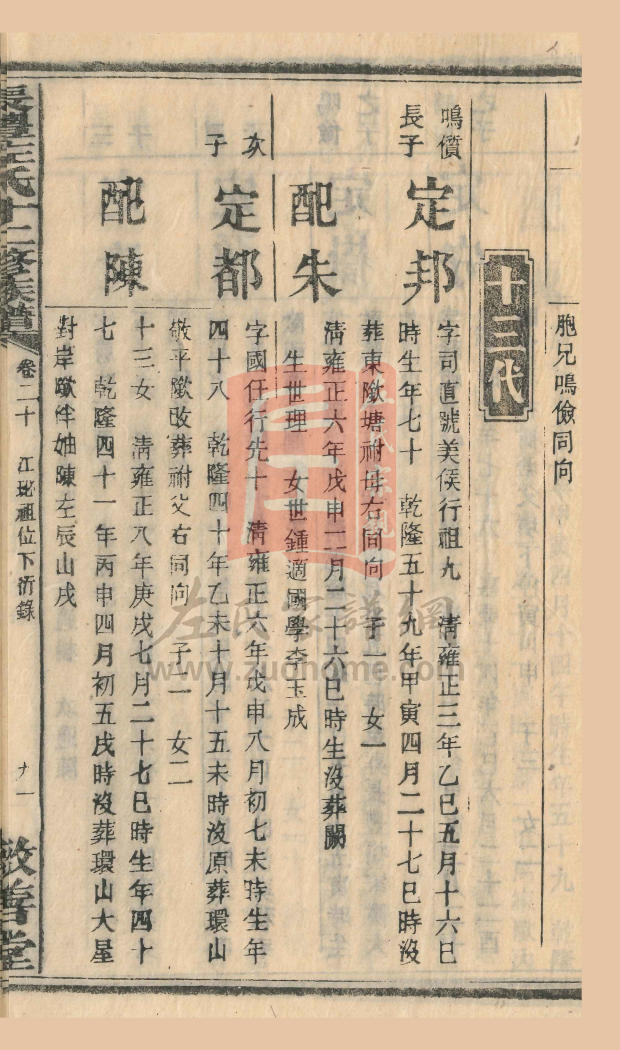 胞兄鳴儉同向
十三代
鳴價長子
定邦
字司直號美侯行祖九 清雍正三年乙巳五月十六巳
時生年七十 乾隆五十九年甲寅四月二十七巳時沒
葬東塘祔母右同向 子一 女一
配朱
清雍正六年戊申二月二十六巳時生沒葬闕
生世理 女世鍾適國學李玉成
次子
定都
字國任行先十 清雍正六年戊申八月初七未時生年
四十八 乾隆四十年乙未十月十五未時沒原葬環山
敬平改葬祔父右同向 子二 女二
配陳
十三女 清雍正八年庚戌七月二十七巳時生年四十
七 乾隆四十一年丙申四月初五戌時沒葬環山大星
對岸伴妯陳左辰山戌
長豐左氏十二修族譜
卷二十
江玭祖位下衍錄
九一
敦善堂
左氏家譜網
www.zuohome.com